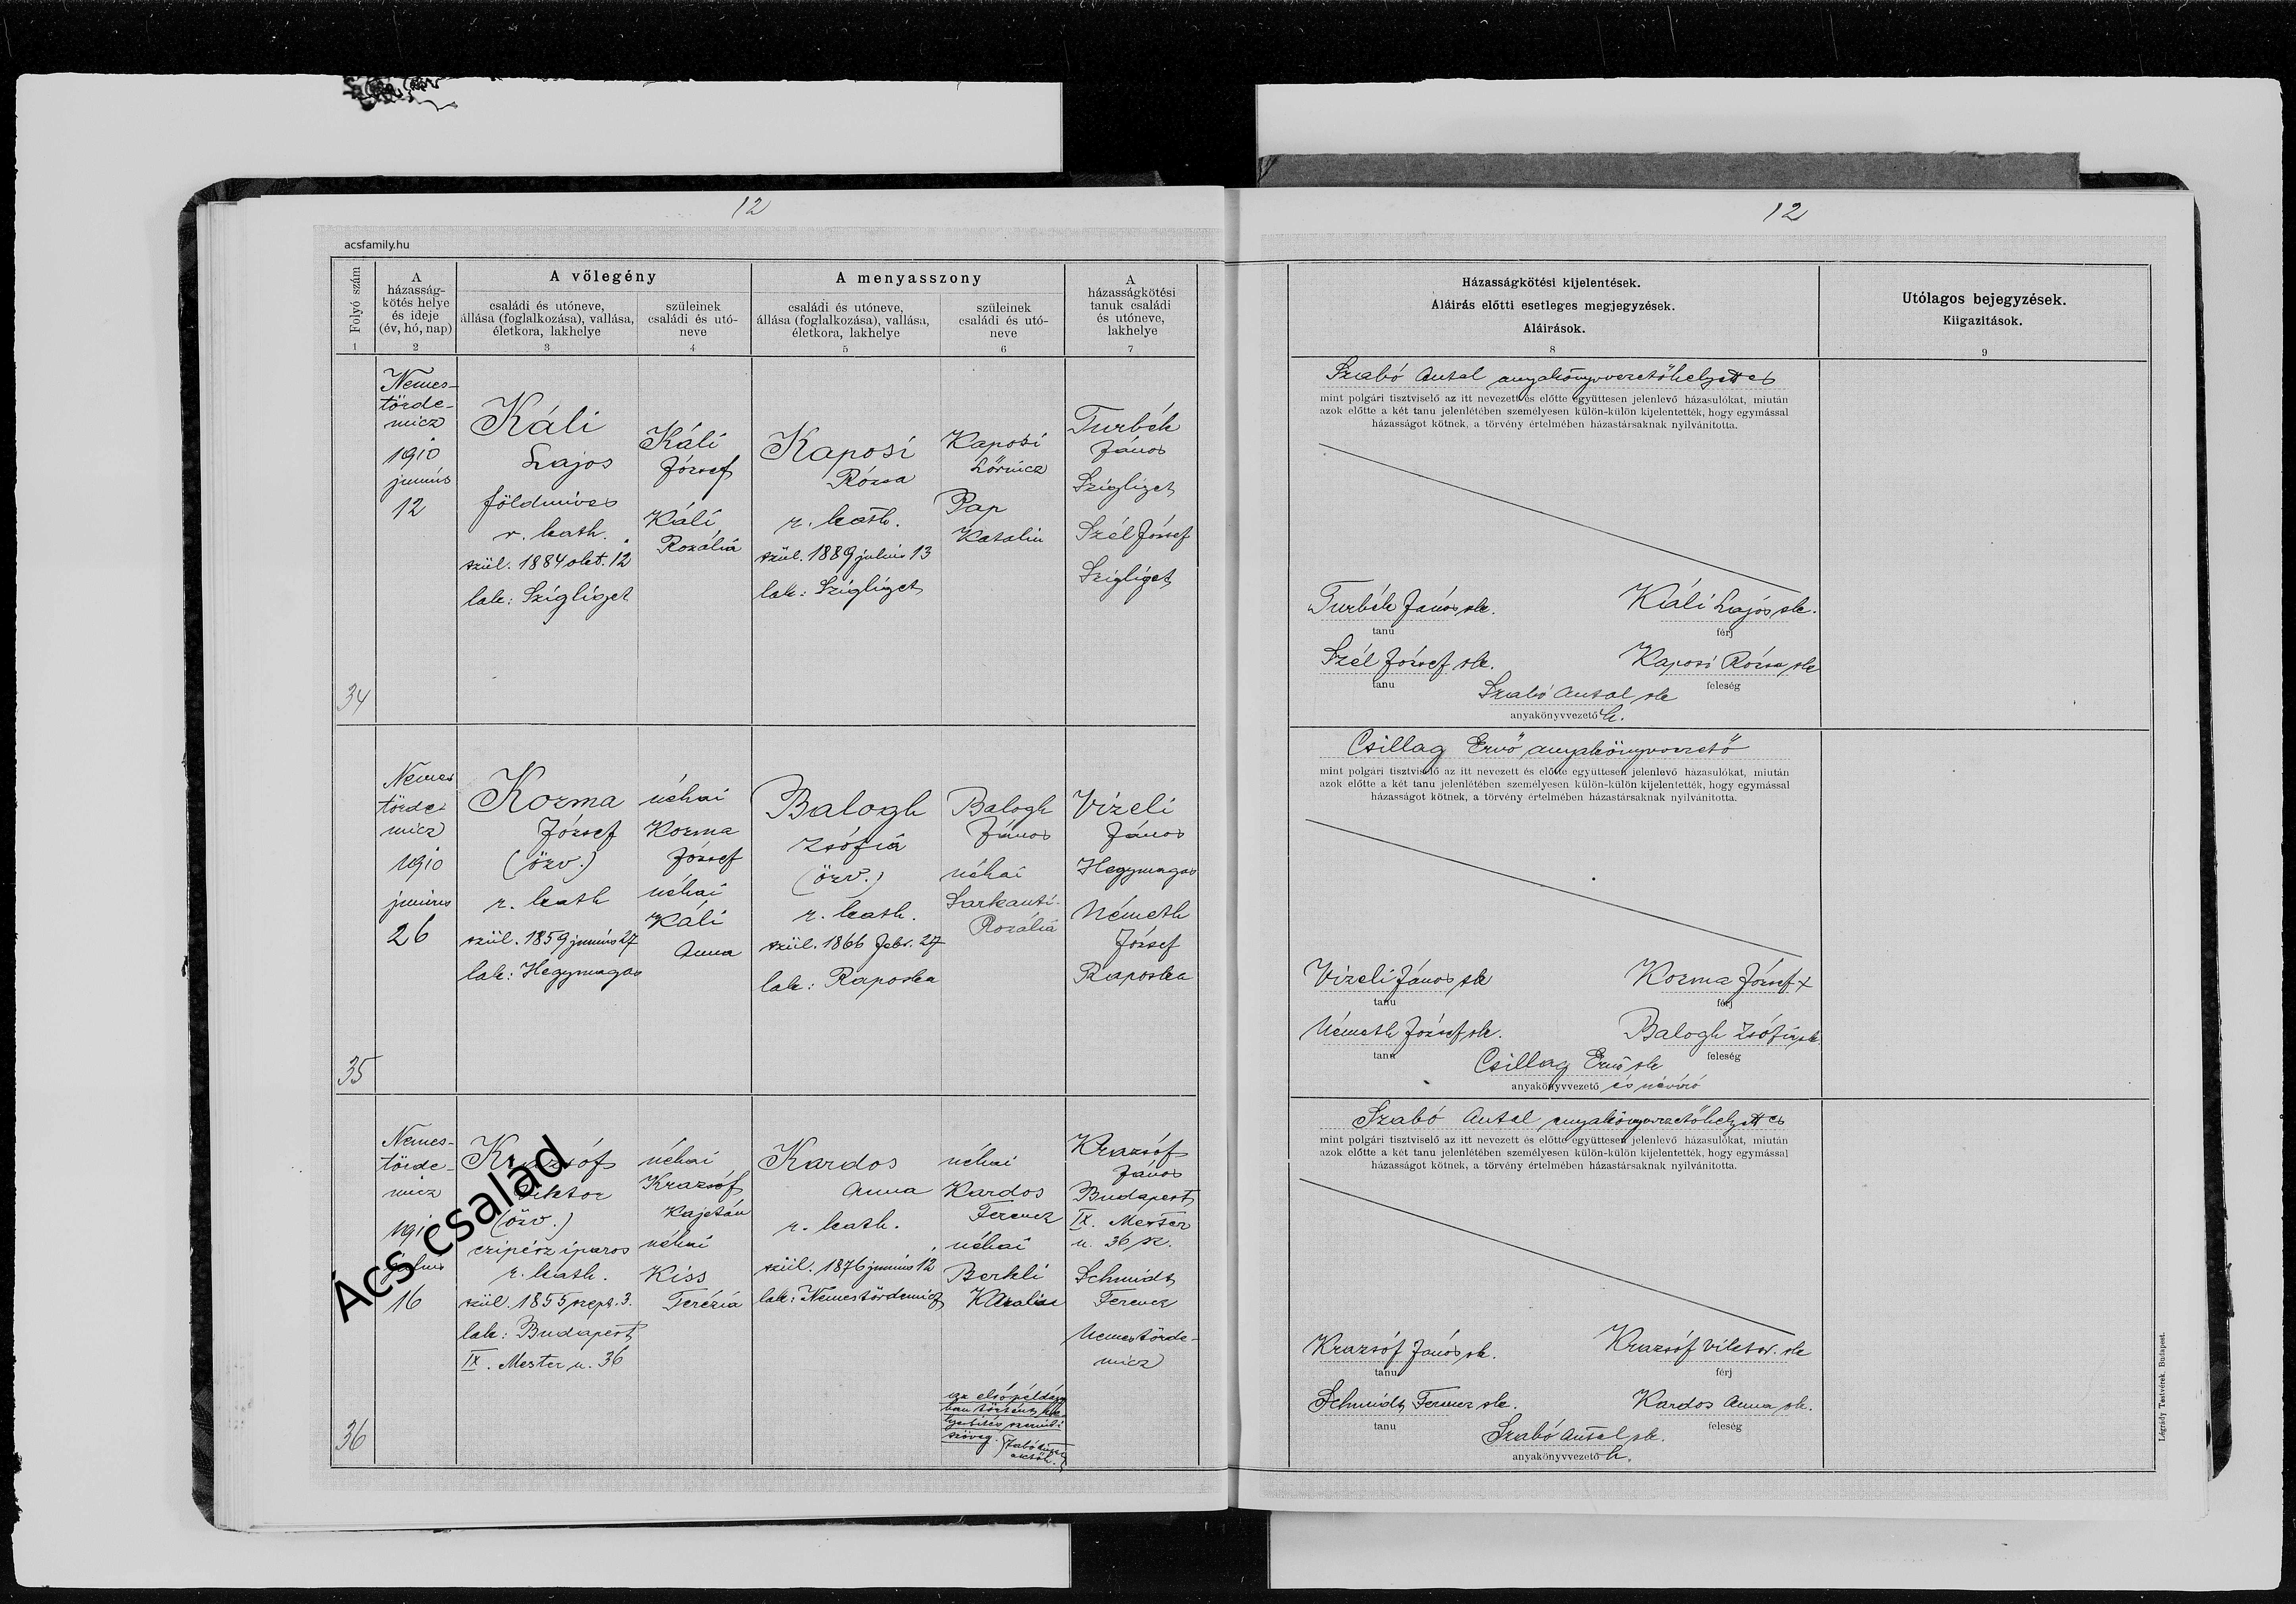 12
12
acsfamily.hu
Folyó szám
A
házasság-
kötés helye
és ideje
(év, hó, nap)
A vőlegény
családi és utóneve,
állása (foglalkozása), vallása,
életkora, lakhelye
szüleinek
családi és utó-
neve
A menyasszony
családi és utóneve,
állása (foglalkozása), vallása,
életkora, lakhelye
szüleinek
családi és utó-
neve
A
házasságkötési
tanuk családi
és utóneve,
lakhelye
1
2
3
4
5
6
7
Házasságkötési kijelentések.
Aláirás előtti esetleges megjegyzések.
Aláirások.
8
Utólagos bejegyzések.
Kiigazitások.
9
34
Nemes-
törde-
micz
1910
junius
12
Káli
Lajos
földmives
r. kath.
szül. 1884 okt. 12
lak: Szigliget
Káli
József
Káli
Rozália
Kaposi
Rózsa
r. kath.
szül. 1889 julius 13
lak: Szigliget
Kaposi
Lőrincz
Pap
Katalin
Turbék
János
Szigliget
Szél József
Szigliget
Szabó Antal anyakönyvvezetőhelyettes
mint polgári tisztviselő az itt nevezett és előtte együttesen jelenlevő házasulókat, miután
azok előtte a két tanu jelenlétében személyesen külön-külön kijelentették, hogy egymással
házasságot kötnek, a törvény értelmében házastársaknak nyilvánitotta.
Turbék János sk.
tanu
Káli Lajos sk.
férj
Szél József sk.
tanu
Kaposi Rózsa sk
feleség
Szabó Antal sk
anyakönyvvezető h.
35
Nemes
törde-
micz
1910
junius
26
Kozma
József
(özv.)
r. kath
szül. 1859 junius 27
lak: Hegymagas
néhai
Kozma
József
néhai
Káli
Anna
Balogh
Zsófia
(özv.)
r. kath.
szül. 1866 febr. 27
lak: Raposka
Balogh
János
néhai
Sarkanti-
Rozália
Vizeli
János
Hegymagas
Németh
József
Raposka
Csillag Ernő anyakönyvvezető
mint polgári tisztviselő az itt nevezett és előtte együttesen jelenlevő házasulókat, miután
azok előtte a két tanu jelenlétében személyesen külön-külön kijelentették, hogy egymással
házasságot kötnek, a törvény értelmében házastársaknak nyilvánitotta.
Vizeli János sk
tanu
Kozma József x
férj
Németh József sk.
tanu
Balogh Zsófia sk.
feleség
Csillag Ernő sk
anyakönyvvezető és névíró
36
Nemes-
törde-
micz
1910
julius
16
Krazsóf
Viktor
(özv.)
czipész iparos
r. kath.
szül. 1855 szept. 3.
lak: Budapest
IX. Mester u. 36
néhai
Krazsóf
Kajetán
néhai
Kiss
Terézia
Kardos
Anna
r. kath.
szül. 1876 junius 12
lak: Nemestördemicz
néhai
Kardos
Ferencz
néhai
Berkli
Katalin
az első példány
ban történt ki
igazítás szerinti
szöveg.
Krazsóf
János
Budapest
IX. Mester
u. 36 sz.
Schmidt
Ferencz
Nemestörde-
micz
Ács család
Szabó Antal anyakönyvvezetőhelyettes
mint polgári tisztviselő az itt nevezett és előtte együttesen jelenlevő házasulókat, miután
azok előtte a két tanu jelenlétében személyesen külön-külön kijelentették, hogy egymással
házasságot kötnek, a törvény értelmében házastársaknak nyilvánitotta.
Krazsóf János sk.
tanu
Krazsóf Viktor sk
férj
Schmidt Ferencz sk.
tanu
Kardos Anna sk.
feleség
Szabó Antal sk.
anyakönyvvezető h.
Légrády Testvérek. Budapest.